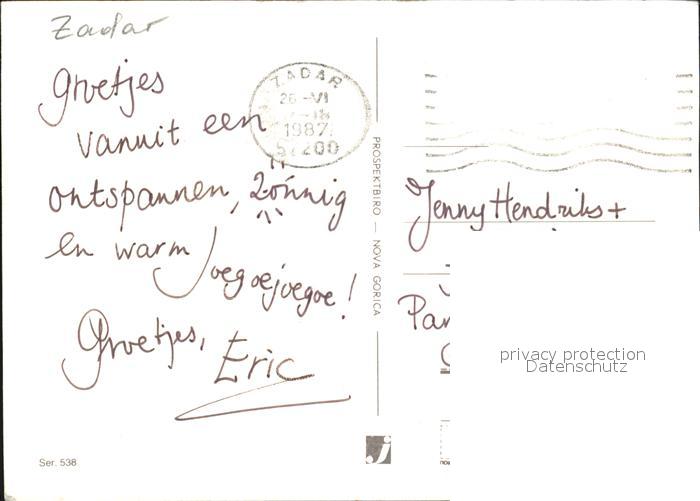 Zadar
Groetjes
vanuit een
ontspannen, zonnig
en warm
Joegoejoegoe!
Groetjes,
Eric
Ser. 538
ZADAR
26-VI
1987
57200
PROSPEKTBIRO — NOVA GORICA
j
Jenny Hendriks +
privacy protection
Datenschutz